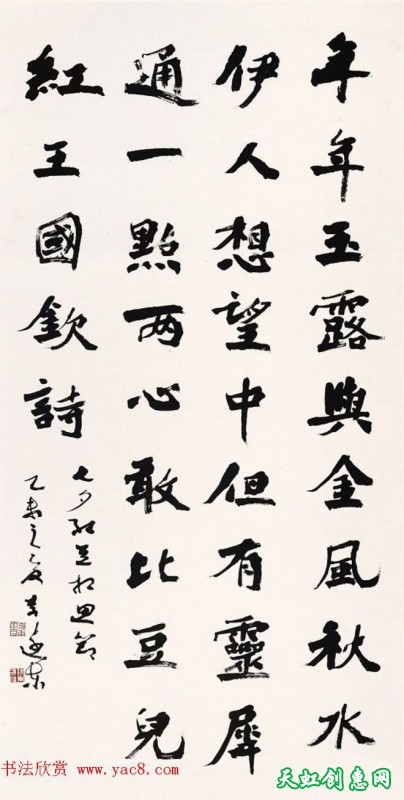 年年玉露與金風秋水
伊人想望中但有靈犀
通一點兩心敢比豆兒
紅王國欽詩
七夕紅豆相思節
乙未之夏
书法欣赏 www.yac8.com
天虹创惠网